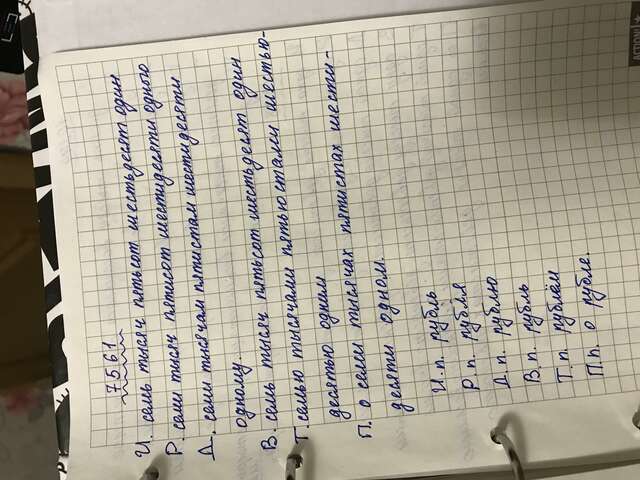 7561
И. семь тысяч пятьсот шестьдесят один
Р. семи тысяч пятисот шестидесяти одного
Д. семи тысячам пятистам шестидесяти
одному.
В. семь тысяч пятьсот шестьдесят один
Т. семью тысячами пятьюстами шестью-
десятью одним
П. о семи тысячах пятистах шести-
десяти одном.
И.п. рубль
Р.п. рубля
Д.п. рублю
В.п. рубль
Т.п. рублём
П.п. о рубле.